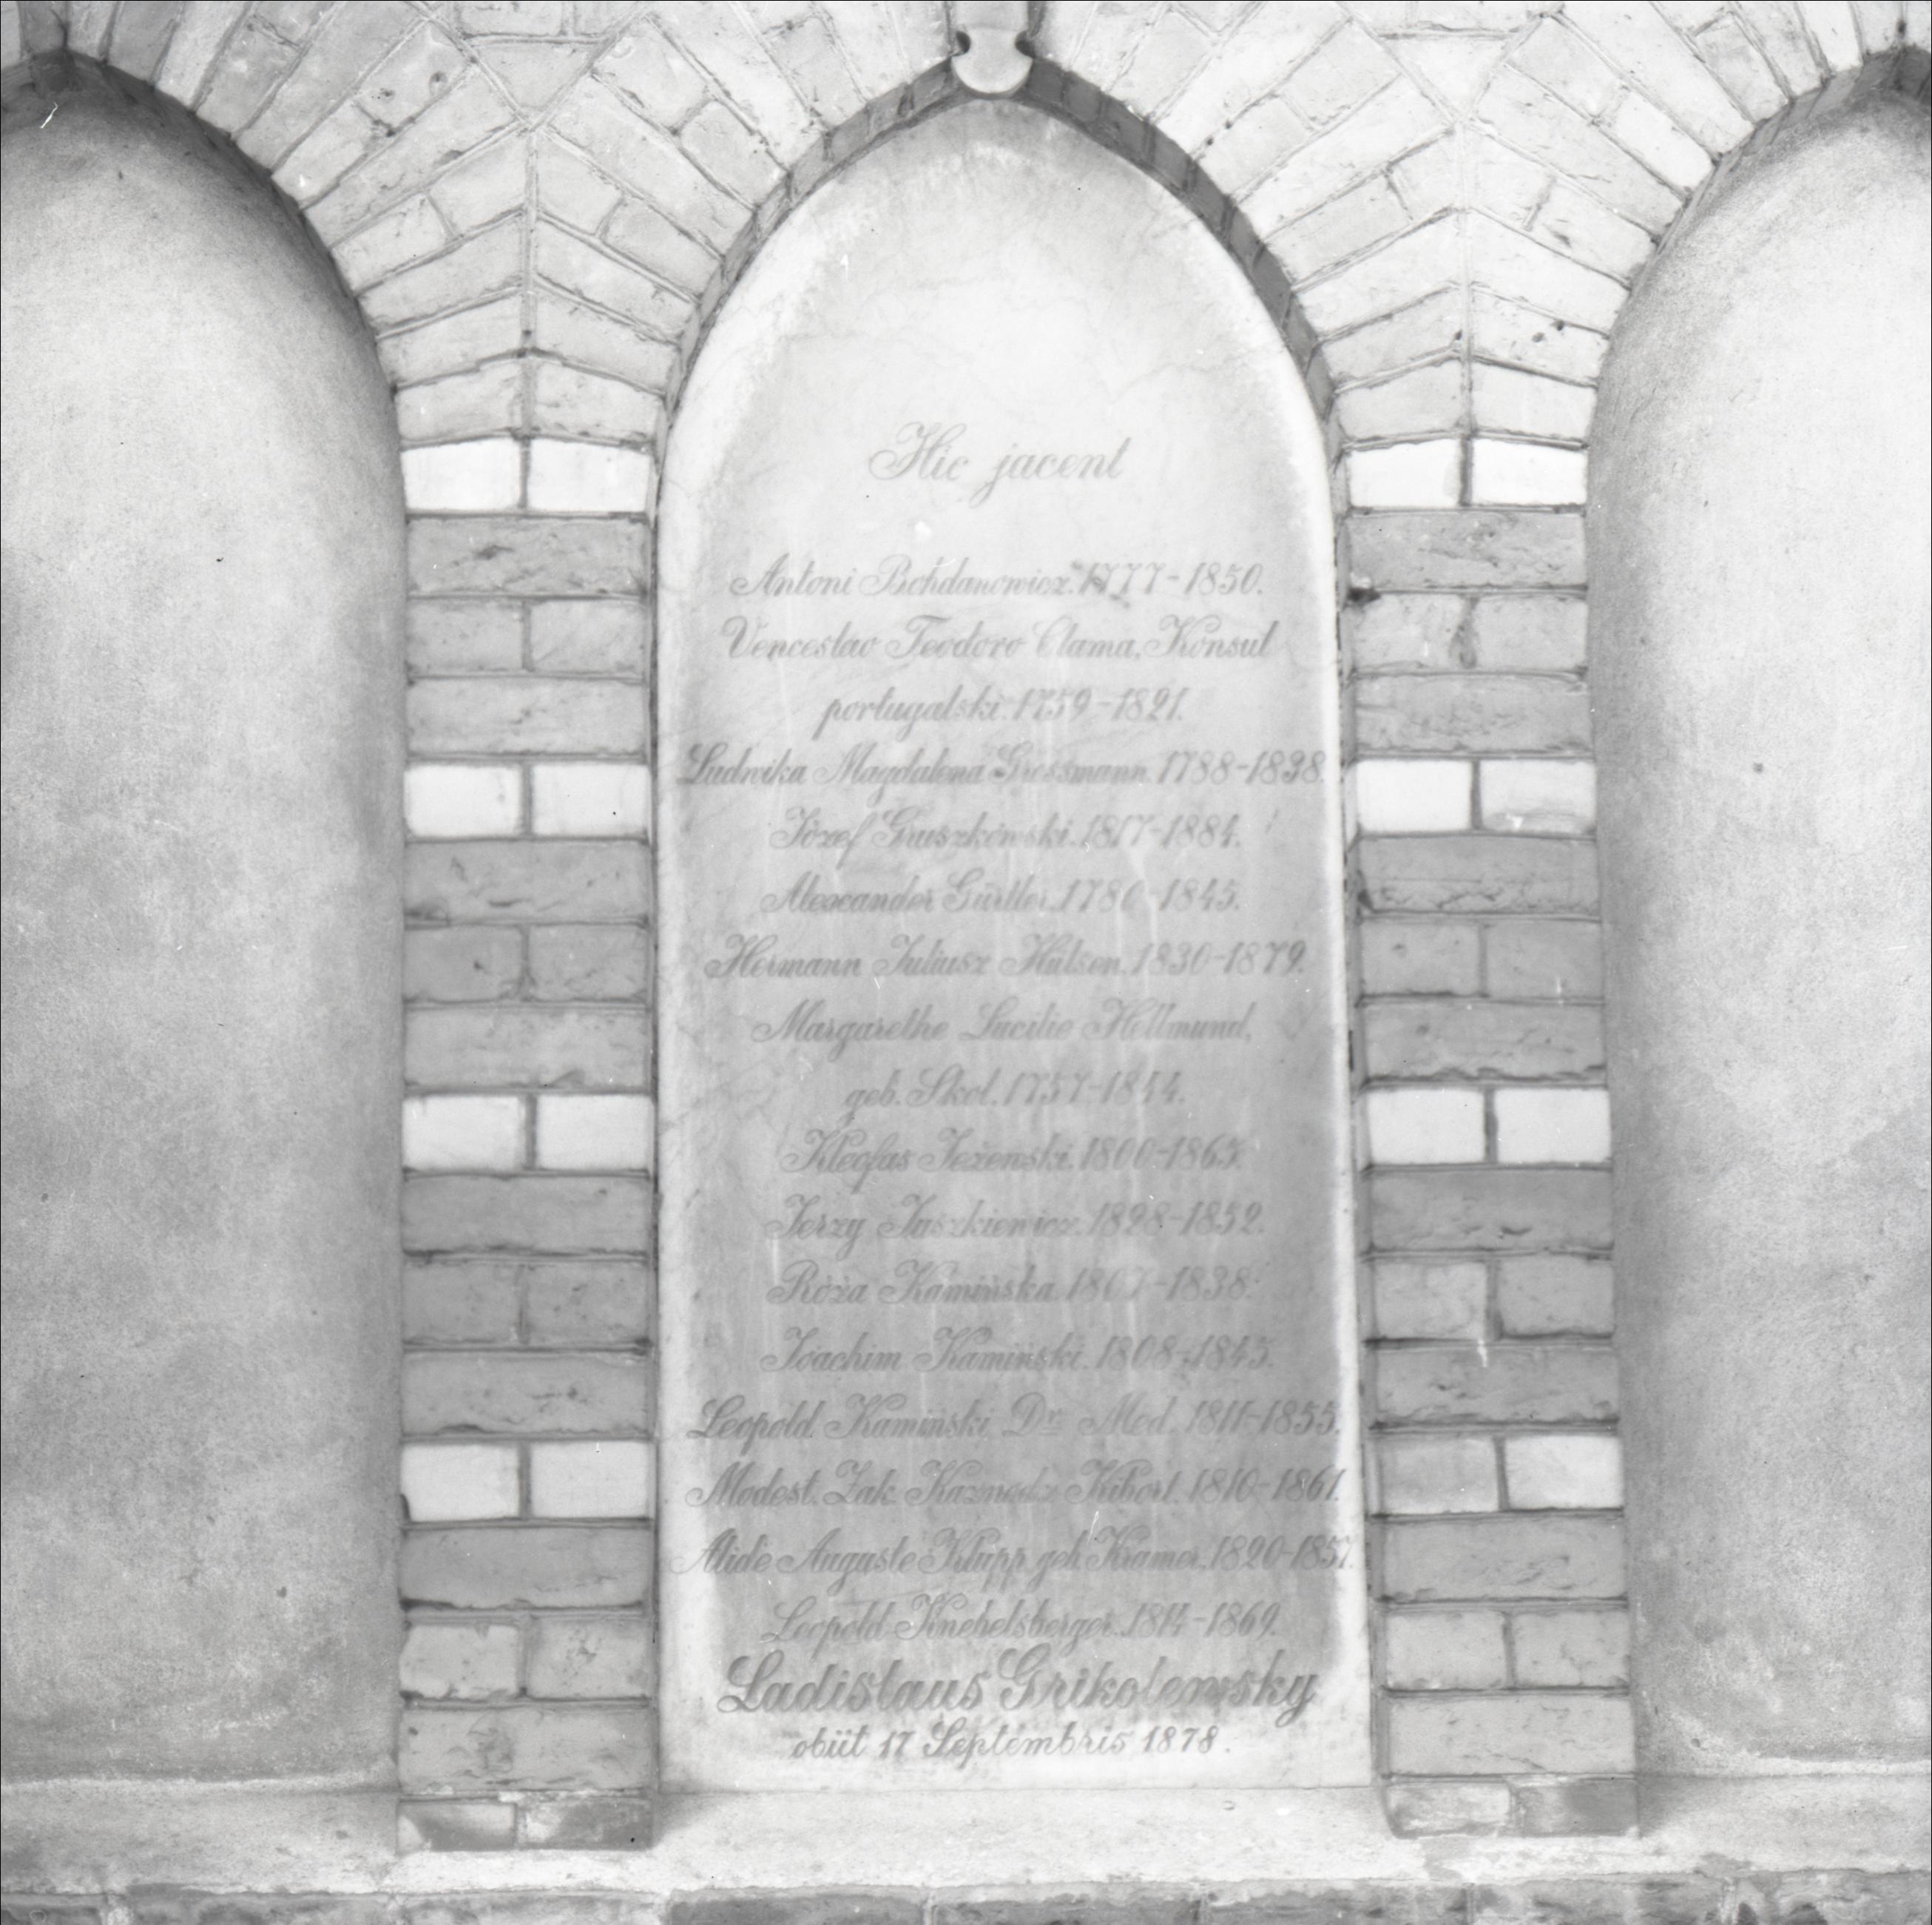 Hic jacent
Antoni Bohdanowicz. 1777-1850.
Venceslao Teodoro Clama, Konsul
portugalski. 1759-1821.
Ludwika Magdalena Grossmann. 1788-1838.
Józef Gruszkowski. 1817-1884.
Alexander Gürtler. 1780-1845.
Hermann Juliusz Hülsen. 1830-1879.
Margarethe Lucilie Hellmund,
geb. Skol. 1757-1844.
Kleofas Jeżenski. 1800-1865.
Jerzy Juszkiewicz. 1828-1852.
Róża Kamińska. 1807-1838.
Joachim Kamiński. 1808-1845.
Leopold Kamiński Dr. Med. 1811-1855.
Modest. Zak. Kibort. 1810-1861.
Alide Auguste Klupp geb. Kramer. 1820-1857.
Leopold Knebelsberger. 1814-1869.
Ladislaus Grikolewsky
obiit 17 Septembris 1878.